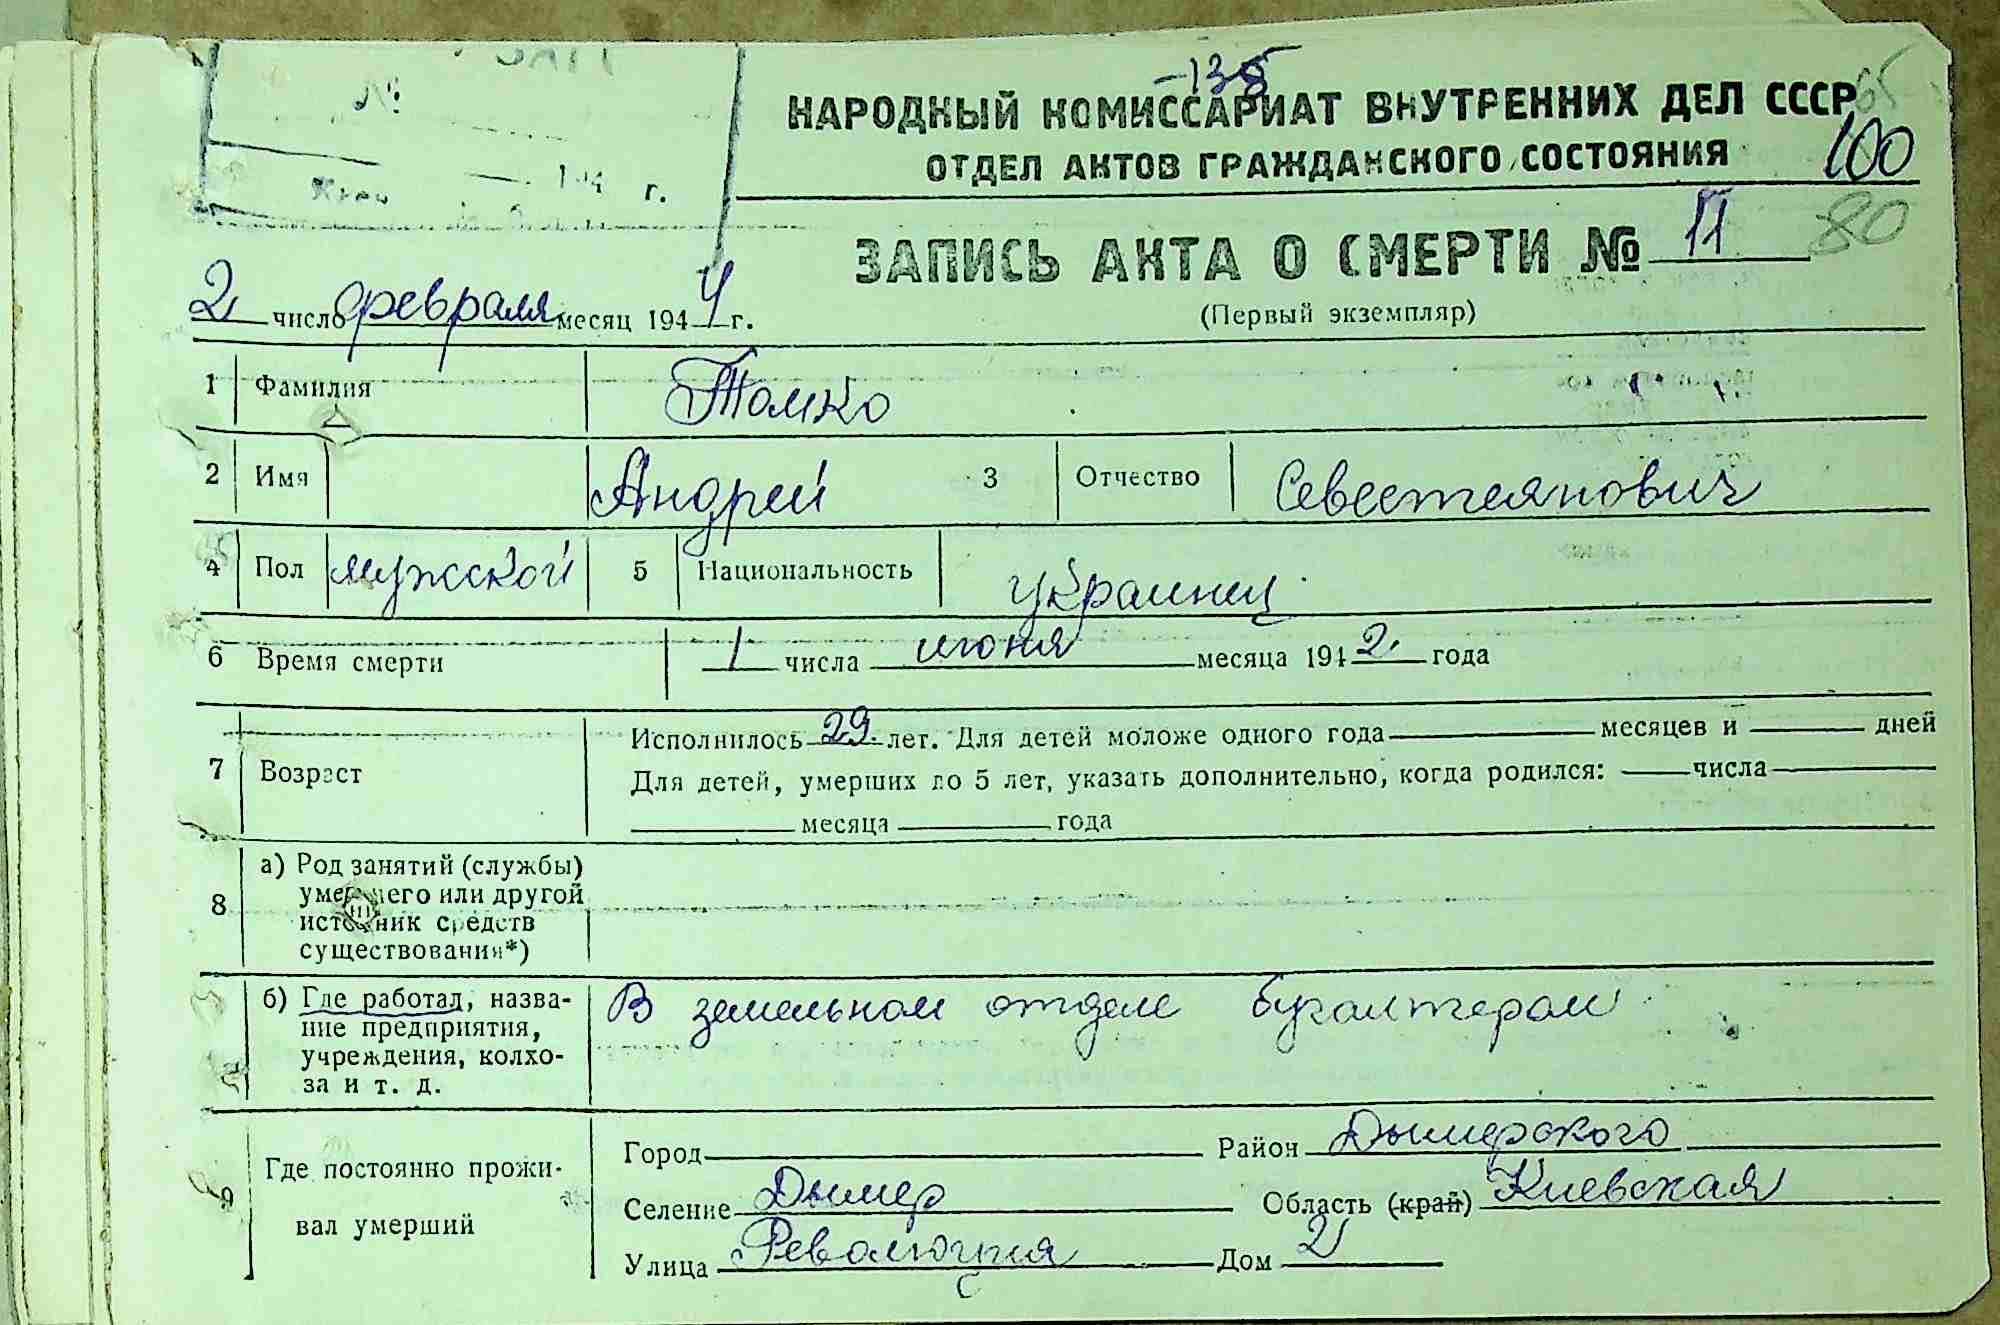 -135
НАРОДНЫЙ КОМИССАРИАТ ВНУТРЕННИХ ДЕЛ СССР
65
ОТДЕЛ АКТОВ ГРАЖДАНСКОГО СОСТОЯНИЯ
100
№
194 г.
ЗАПИСЬ АКТА О СМЕРТИ № 11
80
2 число февраля месяц 1944 г.
(Первый экземпляр)
1 Фамилия Томко
2 Имя Андрей 3 Отчество Севестеянович
4 Пол мужской 5 Национальность украинец
6 Время смерти 1 числа июня месяца 1942 года
7 Возраст
Исполнилось 29 лет. Для детей моложе одного года месяцев и дней
Для детей, умерших до 5 лет, указать дополнительно, когда родился: числа
месяца года
8 а) Род занятий (службы)
умершего или другой
источник средств
существования*)
б) Где работал, назва-
ние предприятия,
учреждения, колхо-
за и т. д.
В земельном отделе бугалтером
9 Где постоянно прожи-
вал умерший
Город Район Дымерского
Селение Дымер Область (край) Киевская
Улица Революция Дом 2